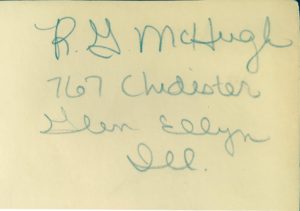 R. G. McHugh
767 Chidester
Glen Ellyn
Ill.